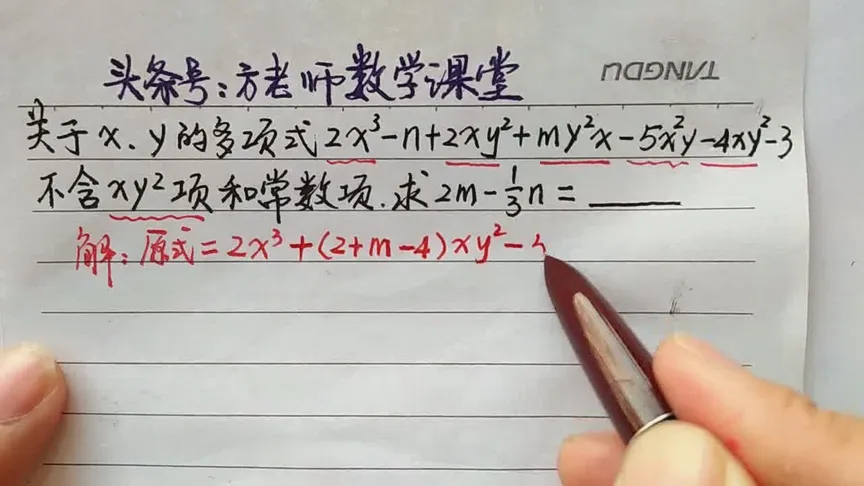 TANGDU
头条号:方老师数学课堂
关于x、y的多项式2x³-n+2xy²+my²x-5x²y-4xy²-3
不含xy²项和常数项.求2m-⅓n=____
解:原式=2x³+(2+m-4)xy²-